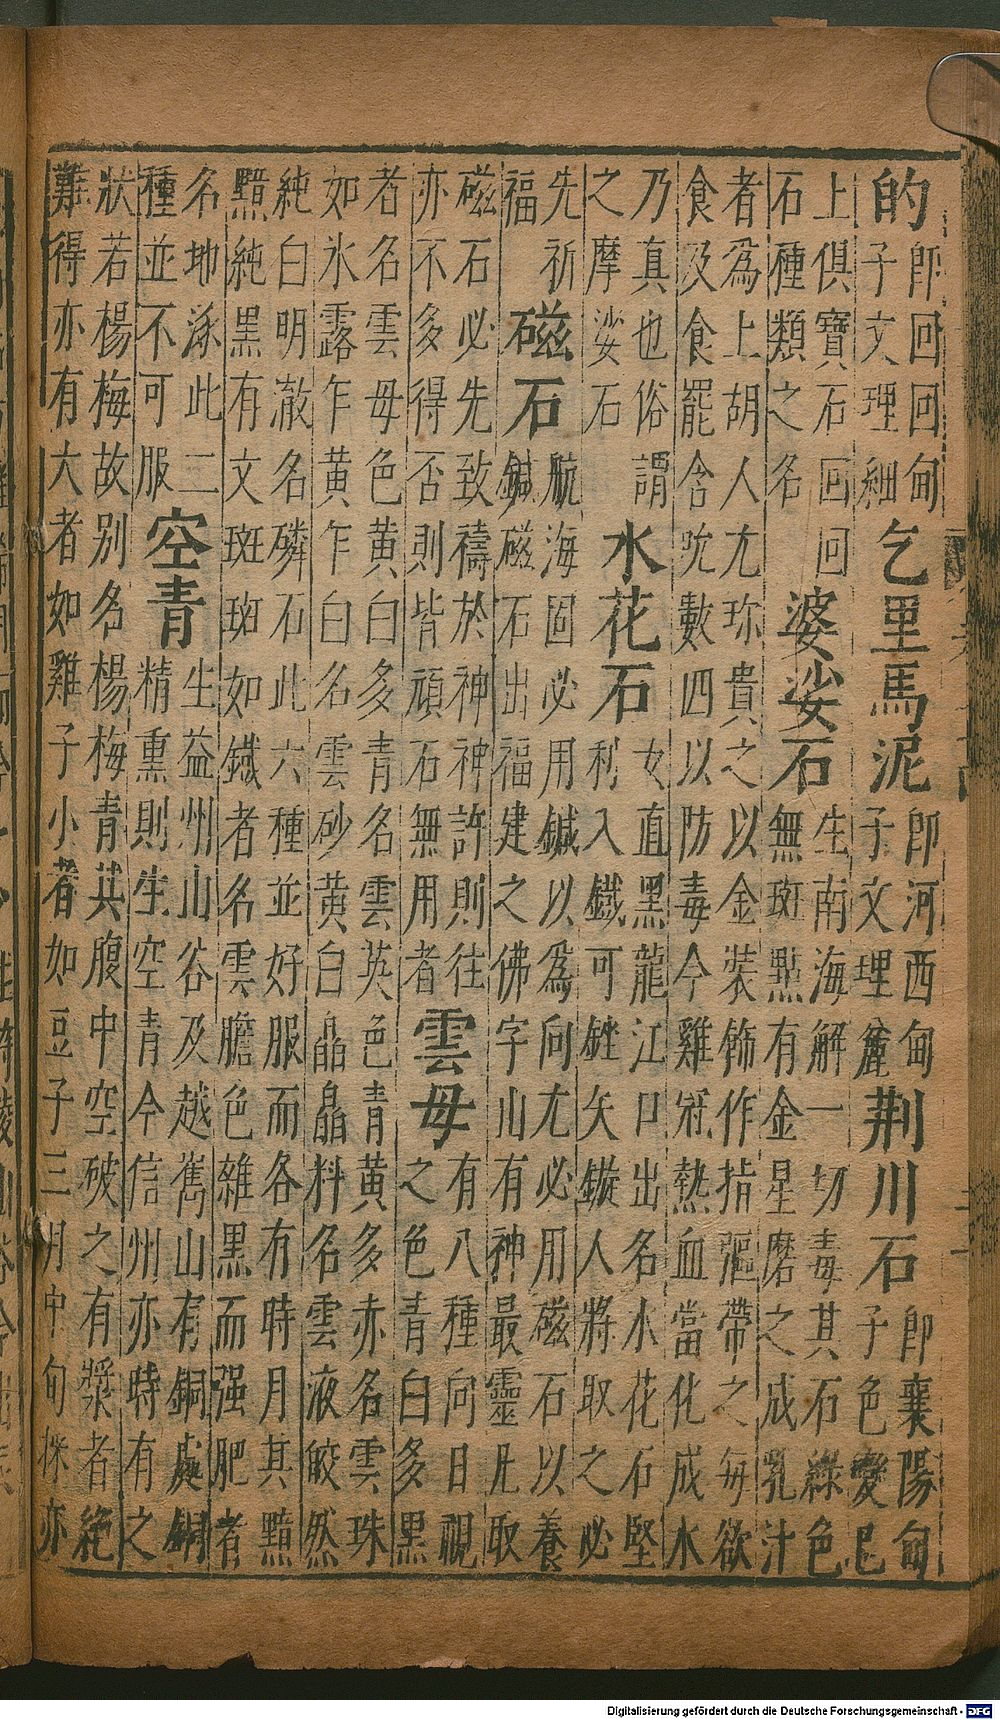 的即回回甸子文理細乞里馬泥即河西甸子文理麄荆川石即襄陽甸子色變巳
上俱寶石回回石種類之名婆娑石生南海解一切毒其石綠色無斑點有金星磨之成乳汁
者為上胡人尤珎貴之以金裝飾作指彄帶之每欲
食及食罷含吮數四以防毒今雞冠熱血當化成水
乃真也俗謂之摩娑石水花石女直黑龍江口出名水花石堅利入鐵可銼矢鏃人將取之必
先祈福磁石航海固必用鍼以為向尤必用磁石以養鍼磁石出福建之佛字山有神最靈凡取
磁石必先致禱於神神許則往亦不多得否則皆頑石無用者雲母有八種向日視之色青白多黑
者名雲母色黄白多青名雲英色青黄多赤名雲珠
如氷露乍黄乍白名雲砂黄白皛皛料名雲液皎然
純白明澈名磷石此六種並好服而各有時月其黯
黯純黑有文斑斑如鐵者名雲膽色雜黑而强肥者
名地涿此二種並不可服空青生益州山谷及越嶲山有銅處銅精熏則生空青今信州亦時有之
狀若楊梅故別名楊梅青其腹中空破之有漿者絶
難得亦有大者如雞子小者如豆子三月中旬採亦
Digitalisierung gefördert durch die Deutsche Forschungsgemeinschaft - DFG